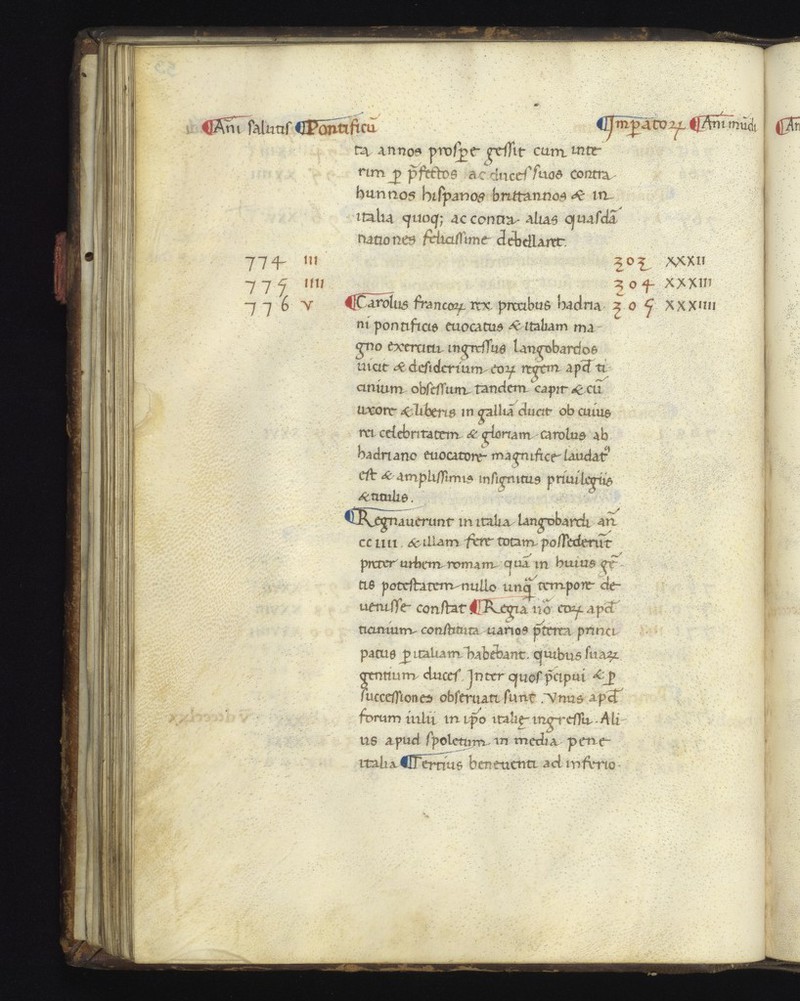 Añi salutis Pontificū Imperatoꝝ Añi mūdi
ta annos prospe gessit cum inte
rim ꝑ p̄fectos ac duces suos contra
hunnos hispanos brittannos & in
italia quoq; ac contra alias quasdā
nationes felicissime debellaret.
774 III 303 XXXII
775 IIII 304 XXXIII
776 V Carolus francoꝝ rex precibus hadria 305 XXXIIII
ni pontificis euocatus & italiam ma
gno exercitu ingressus langobardos
uicit & desiderium eoꝝ regem apd̄ ti
cinium obsessum tandem capit & cū
uxore & liberis in galliā ducit ob cuius
rei celebritatem & gloriam carolus ab
hadriano euocatore magnifice laudatꝰ
est & amplissimis insignitus priuilegiis
& titulis.
Regnauerunt in italia langobardi añ
cc IIII. & illam fere totam possederūt
preter urbem romam quā in huius gē
tis potestatem nullo unq̄ tempore de
uenisse constat Regia uō eoꝝ apd̄
ticinium constituta uarios p̄terea princi
patus ꝑ italiam habebant. quibus suaꝝ
gentium duces. Inter quos p̄cipui & ꝑ
successiones obseruati sunt. Vnus apd̄
forum iulii in ip̄o italię ingressu. Ali
us apud spoletum in media pene
italia Tertius beneuenti ad inferio